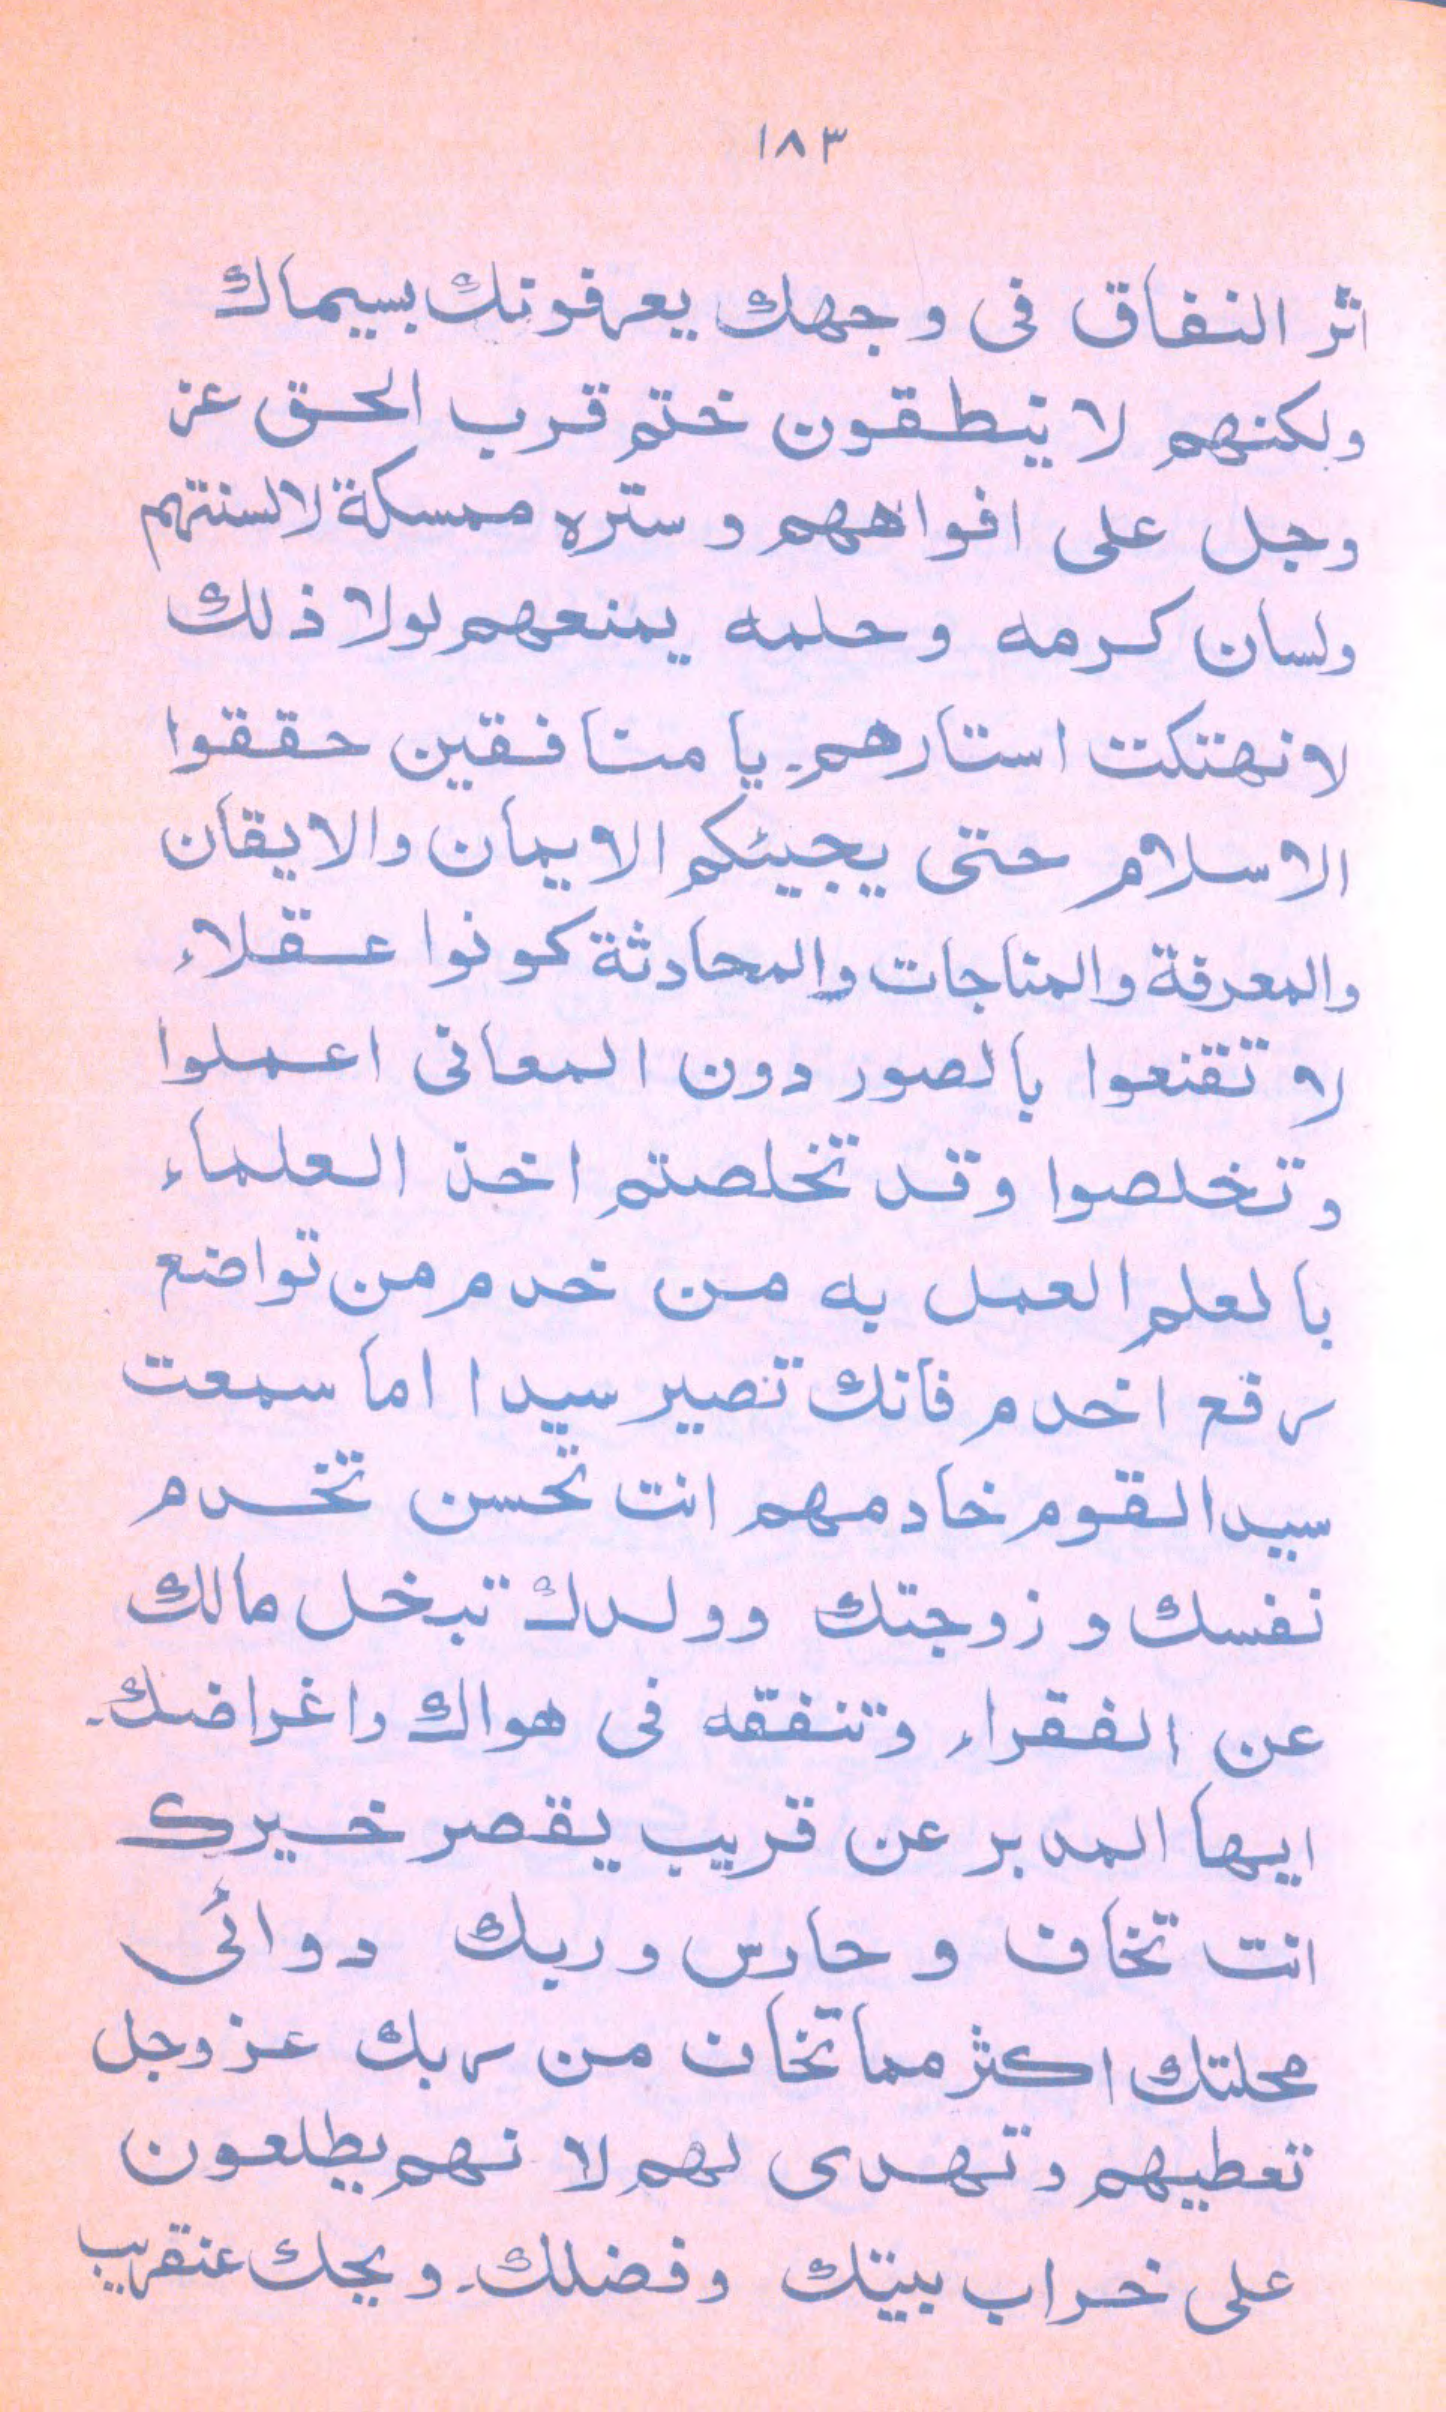 ١٨٣
اثر النفاق فى وجهك يعرفونك بسيماك
ولكنهم لا ينطقون ختم قرب الحق عز
وجل على افواههم وستره ممسكة لالسنتهم
ولسان كرمه وحلمه يمنعهم لولا ذلك
لانهتكت استارهم۔ يا منافقين حققوا
الاسلام حتى يجيئكم الايمان والايقان
والمعرفة والمناجات والمحادثة كونوا عقلاء
لا تقنعوا بالصور دون المعانى اعملوا
وتخلصوا وقد تخلصتم اخذ العلماء
بالعلم العمل به من خدم من تواضع
رفع اخدم فانك تصير سيدا اما سمعت
سيد القوم خادمهم انت تحسن تخدم
نفسك وزوجتك وولدك تبخل مالك
عن الفقراء وتنفقه فى هواك واغراضك۔
ايها المدبر عن قريب يقصر خيرك
انت تخاف وحارس وربك دوائى
محلتك اكثر مما تخاف من ربك عز وجل
تعطيهم وتهدى لهم لانهم يطلعون
على خراب بيتك وفضلك۔ ويحك عنقريب